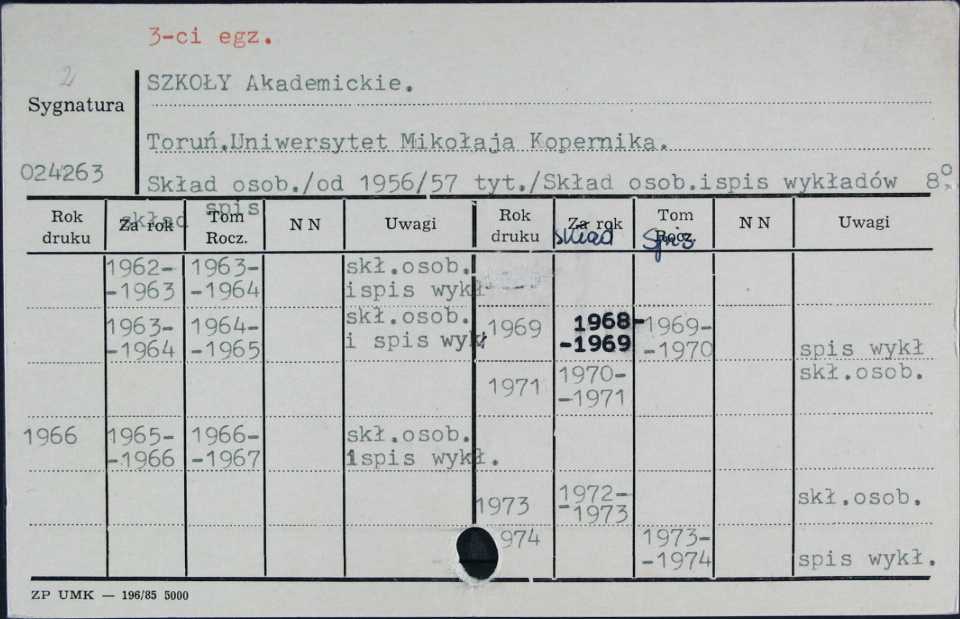 3-ci egz.
2
SZKOŁY Akademickie.
Sygnatura
Toruń.Uniwersytet Mikołaja Kopernika.
024263
Skład osob./od 1956/57 tyt./Skład osob.ispis wykładów 8°
Rok druku Za rok Tom Rocz. N N Uwagi Rok druku Za rok Tom Rocz. N N Uwagi
skład spis skład spis
1962- 1963- skł.osob.
-1963 -1964 ispis wykł
1963- 1964- skł.osob.
-1964 -1965 i spis wykł
1969 1968- 1969-
-1969 -1970 spis wykł
1971 1970- skł.osob.
-1971
1966 1965- 1966- skł.osob.
-1966 -1967 ispis wykł.
1973 1972- skł.osob.
-1973
974 1973-
-1974 spis wykł.
ZP UMK — 196/85 5000